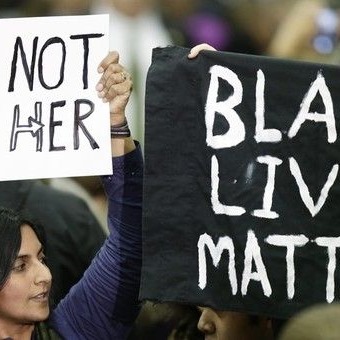 NOT
HER
BLA
LIV
MATT